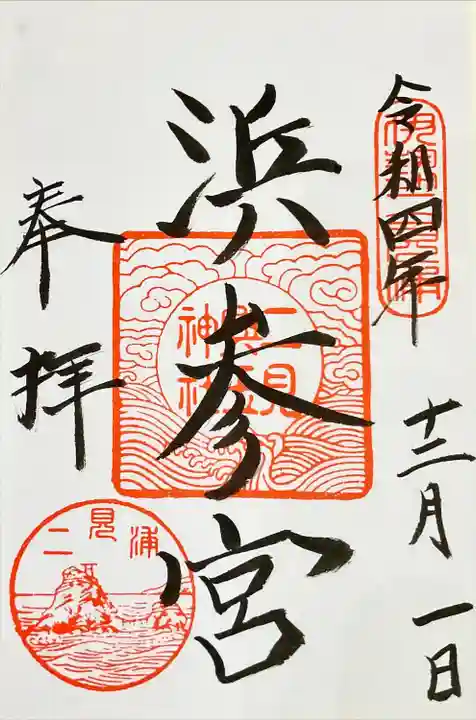 令和四年
十二月一日
浜参宮
二見
興玉
神社
奉拝
二見浦